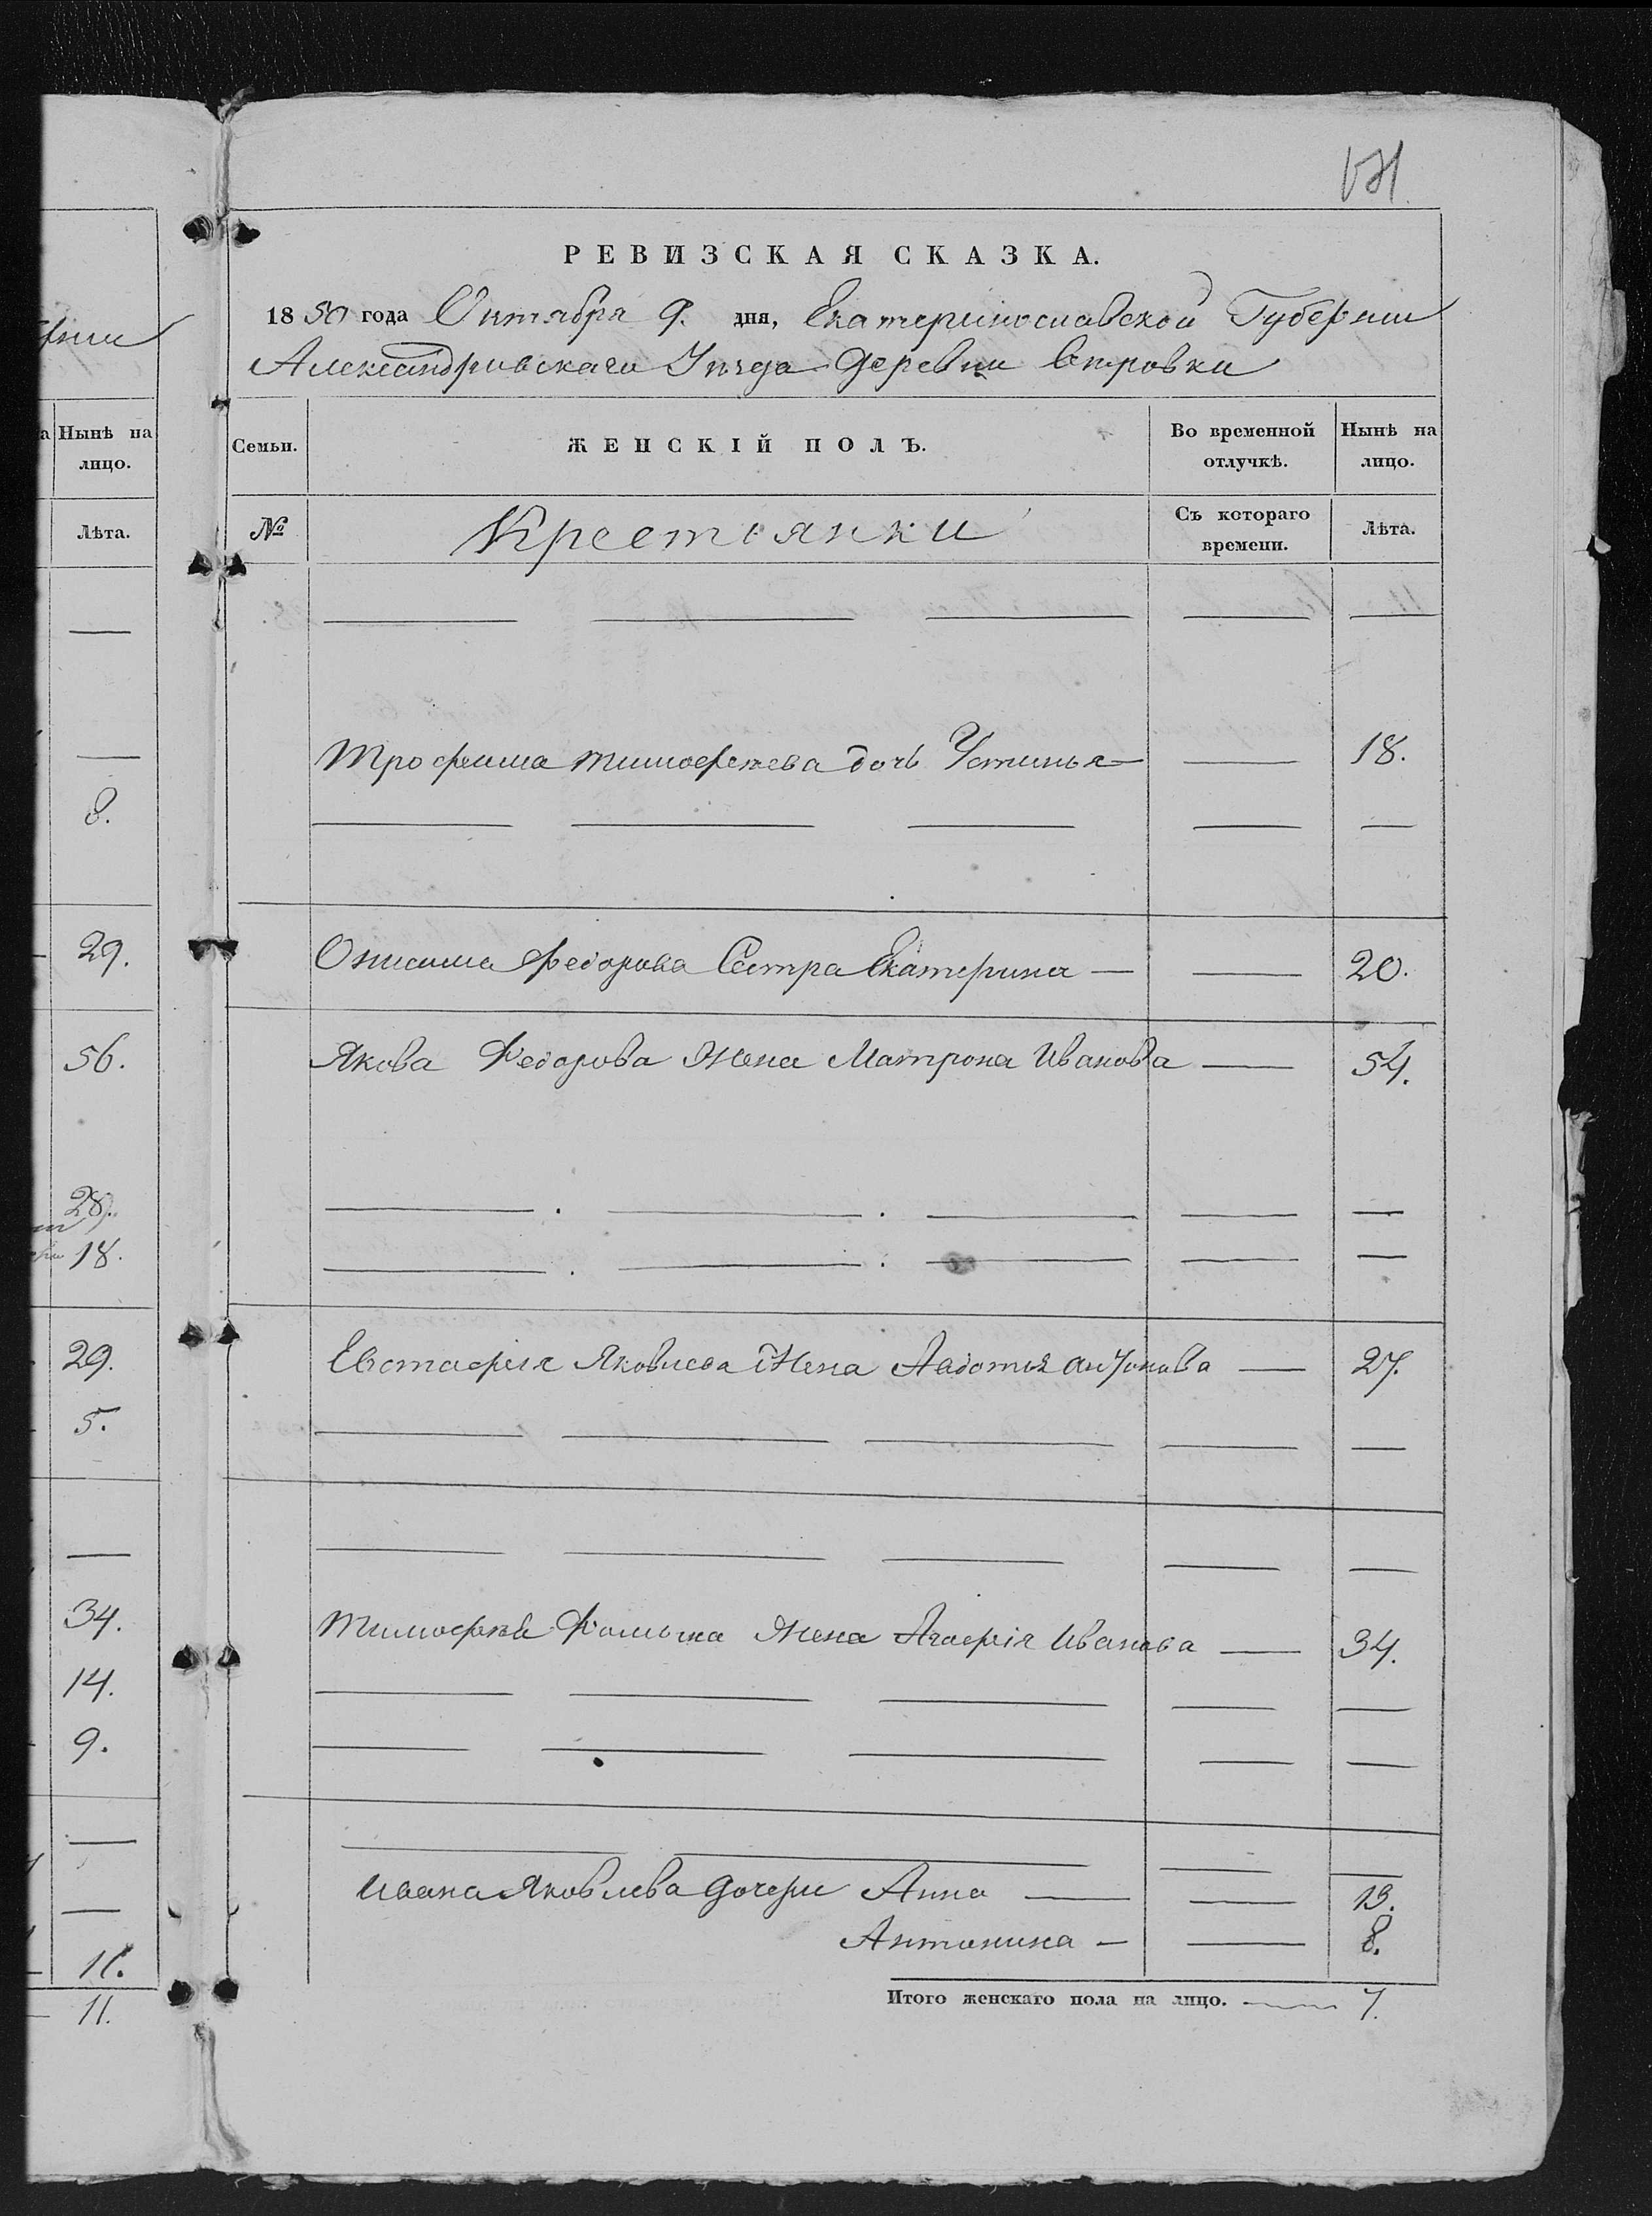 171
РЕВИЗСКАЯ СКАЗКА.
1850 года Октября 9. дня, Екатеринославской Губернии
Александровскаго Уезда деревни
Нынѣ на лицо.
Лѣта.
Семьи.
ЖЕНСКІЙ ПОЛЪ.
Во временной отлучкѣ.
Нынѣ на лицо.
№
Крестьянки
Съ котораго времени.
Лѣта.
—
Трофима Тимофеева дочь Устинья — — 18.
8.
29.
Онисима Федорова Сестра Екатерина — — 20.
56.
Якова Федорова Жена Матрона Иванова — 54.
28.
18.
29.
Евстафія Яковлева Жена Авдотья Антонова — 27.
5.
34.
Тимофея Фомина Жена Агафія Иванова — 34.
14.
9.
Ивана Яковлева дочери Анна — — 13.
Антонина — — 8.
11.
11.
Итого женскаго пола на лицо. — 7.